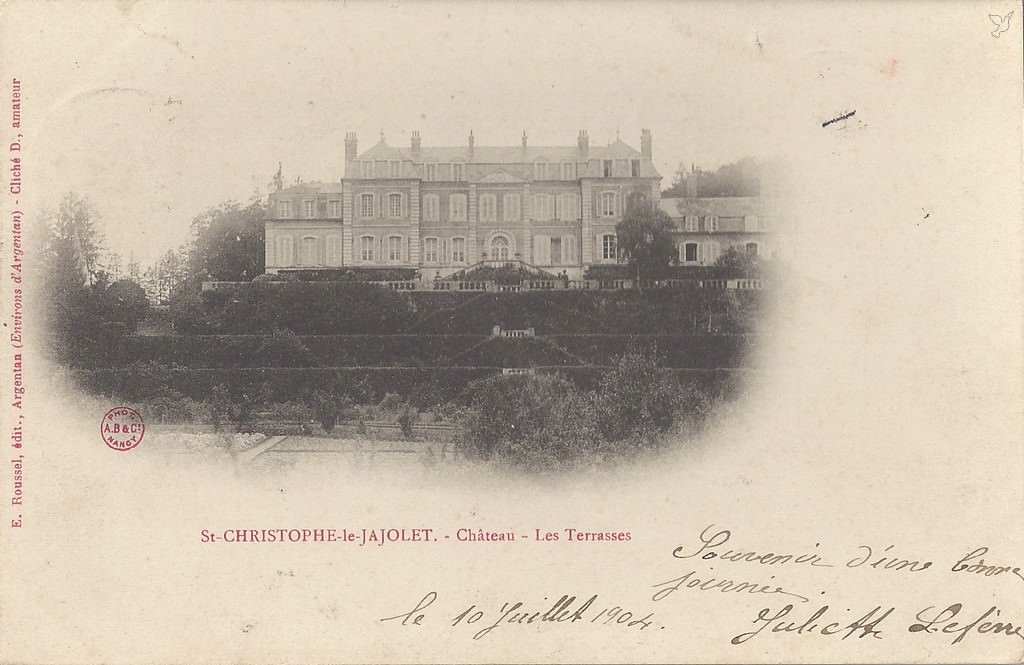 E. Roussel, édit., Argentan (Environs d'Argentan) - Cliché D., amateur
PHOT.
A.B & Cie
NANCY
St-CHRISTOPHE-le-JAJOLET. - Château - Les Terrasses
Souvenir d'une bonne
journée.
le 10 Juillet 1904.
Juliette Lefèvre